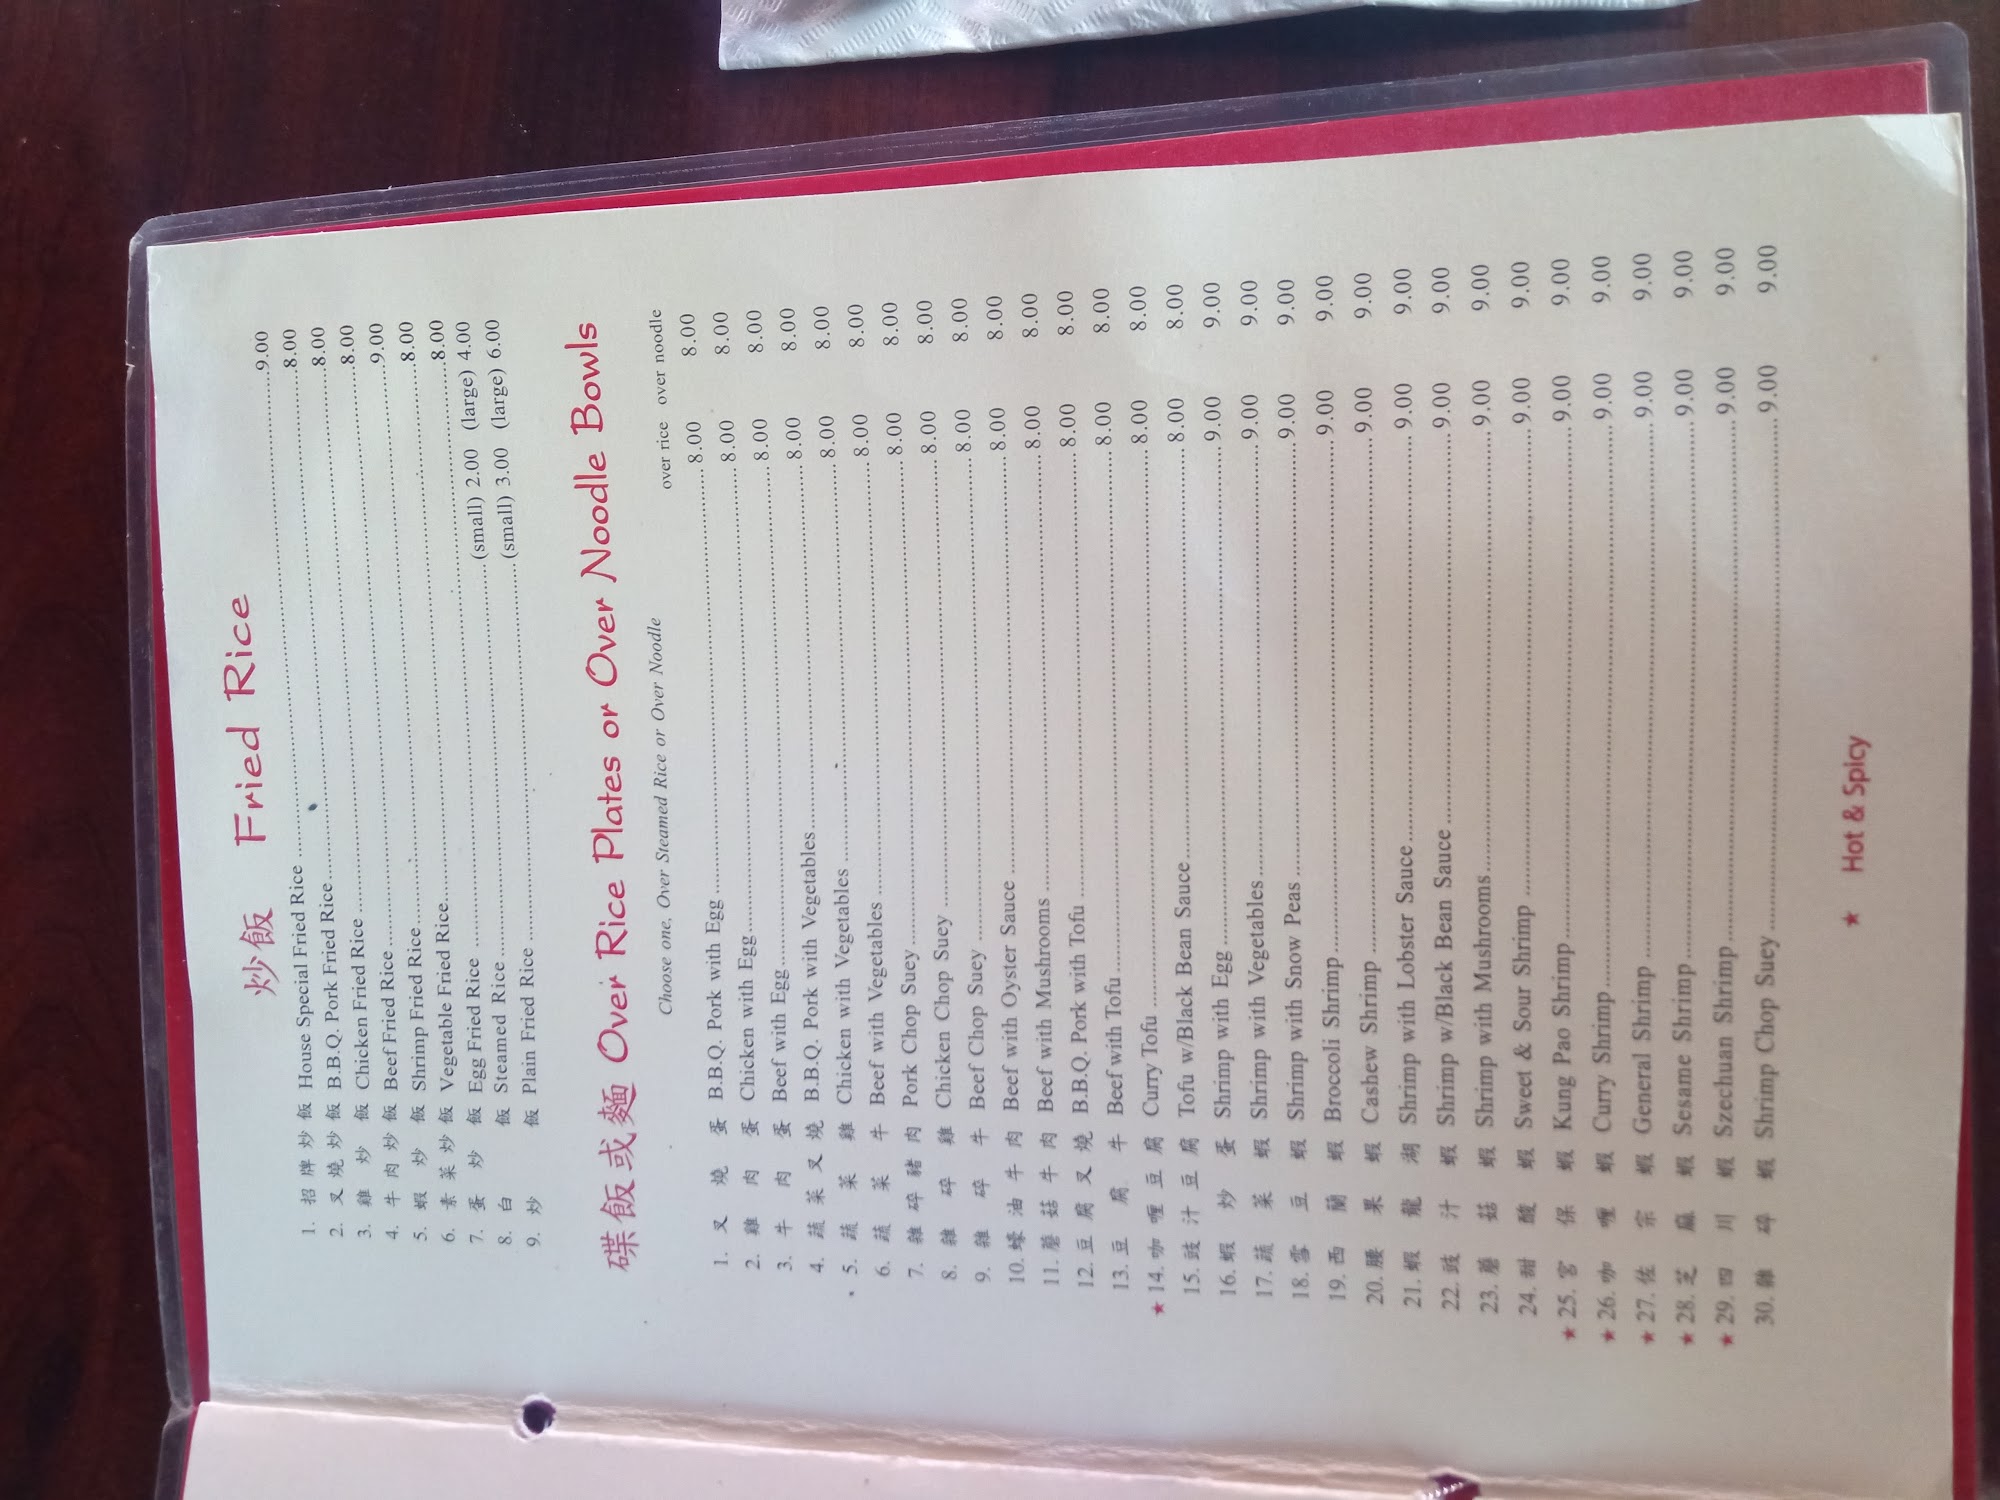 炒飯 Fried Rice
1. 招牌炒飯 House Special Fried Rice ........ 9.00
2. 叉燒炒飯 B.B.Q. Pork Fried Rice ........ 8.00
3. 雞炒飯 Chicken Fried Rice ........ 8.00
4. 牛肉炒飯 Beef Fried Rice ........ 8.00
5. 蝦炒飯 Shrimp Fried Rice ........ 9.00
6. 素菜炒飯 Vegetable Fried Rice ........ 8.00
7. 蛋炒飯 Egg Fried Rice ........ 8.00
8. 白飯 Steamed Rice ........ (small) 2.00 (large) 4.00
9. 炒飯 Plain Fried Rice ........ (small) 3.00 (large) 6.00
碟飯或麵 Over Rice Plates or Over Noodle Bowls
Choose one, Over Steamed Rice or Over Noodle
over rice over noodle
1. 叉燒蛋 B.B.Q. Pork with Egg ........ 8.00 8.00
2. 雞肉蛋 Chicken with Egg ........ 8.00 8.00
3. 牛肉蛋 Beef with Egg ........ 8.00 8.00
4. 蔬菜叉燒 B.B.Q. Pork with Vegetables ........ 8.00 8.00
5. 蔬菜雞 Chicken with Vegetables ........ 8.00 8.00
6. 蔬菜牛 Beef with Vegetables ........ 8.00 8.00
7. 雜碎豬肉 Pork Chop Suey ........ 8.00 8.00
8. 雜碎雞 Chicken Chop Suey ........ 8.00 8.00
9. 雜碎牛 Beef Chop Suey ........ 8.00 8.00
10. 蠔油牛肉 Beef with Oyster Sauce ........ 8.00 8.00
11. 蘑菇牛肉 Beef with Mushrooms ........ 8.00 8.00
12. 豆腐叉燒 B.B.Q. Pork with Tofu ........ 8.00 8.00
13. 豆腐牛 Beef with Tofu ........ 8.00 8.00
★ 14. 咖喱豆腐 Curry Tofu ........ 8.00 8.00
15. 豉汁豆腐 Tofu w/Black Bean Sauce ........ 8.00 8.00
16. 蝦炒蛋 Shrimp with Egg ........ 9.00 9.00
17. 蔬菜蝦 Shrimp with Vegetables ........ 9.00 9.00
18. 雪豆蝦 Shrimp with Snow Peas ........ 9.00 9.00
19. 西蘭蝦 Broccoli Shrimp ........ 9.00 9.00
20. 腰果蝦 Cashew Shrimp ........ 9.00 9.00
21. 蝦龍湖 Shrimp with Lobster Sauce ........ 9.00 9.00
22. 豉汁蝦 Shrimp w/Black Bean Sauce ........ 9.00 9.00
23. 蘑菇蝦 Shrimp with Mushrooms ........ 9.00 9.00
24. 甜酸蝦 Sweet & Sour Shrimp ........ 9.00 9.00
★ 25. 宮保蝦 Kung Pao Shrimp ........ 9.00 9.00
★ 26. 咖喱蝦 Curry Shrimp ........ 9.00 9.00
★ 27. 佐宗蝦 General Shrimp ........ 9.00 9.00
★ 28. 芝麻蝦 Sesame Shrimp ........ 9.00 9.00
★ 29. 四川蝦 Szechuan Shrimp ........ 9.00 9.00
30. 雜碎蝦 Shrimp Chop Suey ........ 9.00 9.00
★ Hot & Spicy